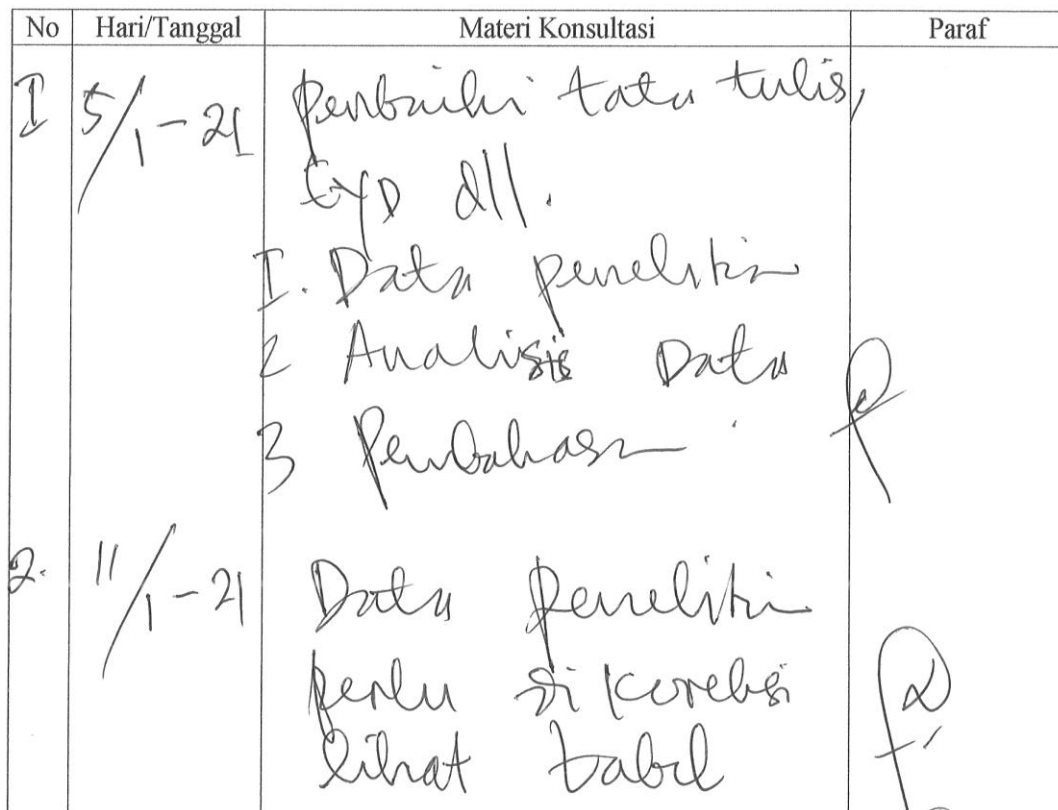 No Hari/Tanggal Materi Konsultasi Paraf
I 5/1-21 Perbaiki tata tulis,
EYD dll.
I. Data penelitian
2 Analisis Data
3 Pembahasan
2. 11/1-21 Data Penelitian
perlu dikoreksi
lihat tabel